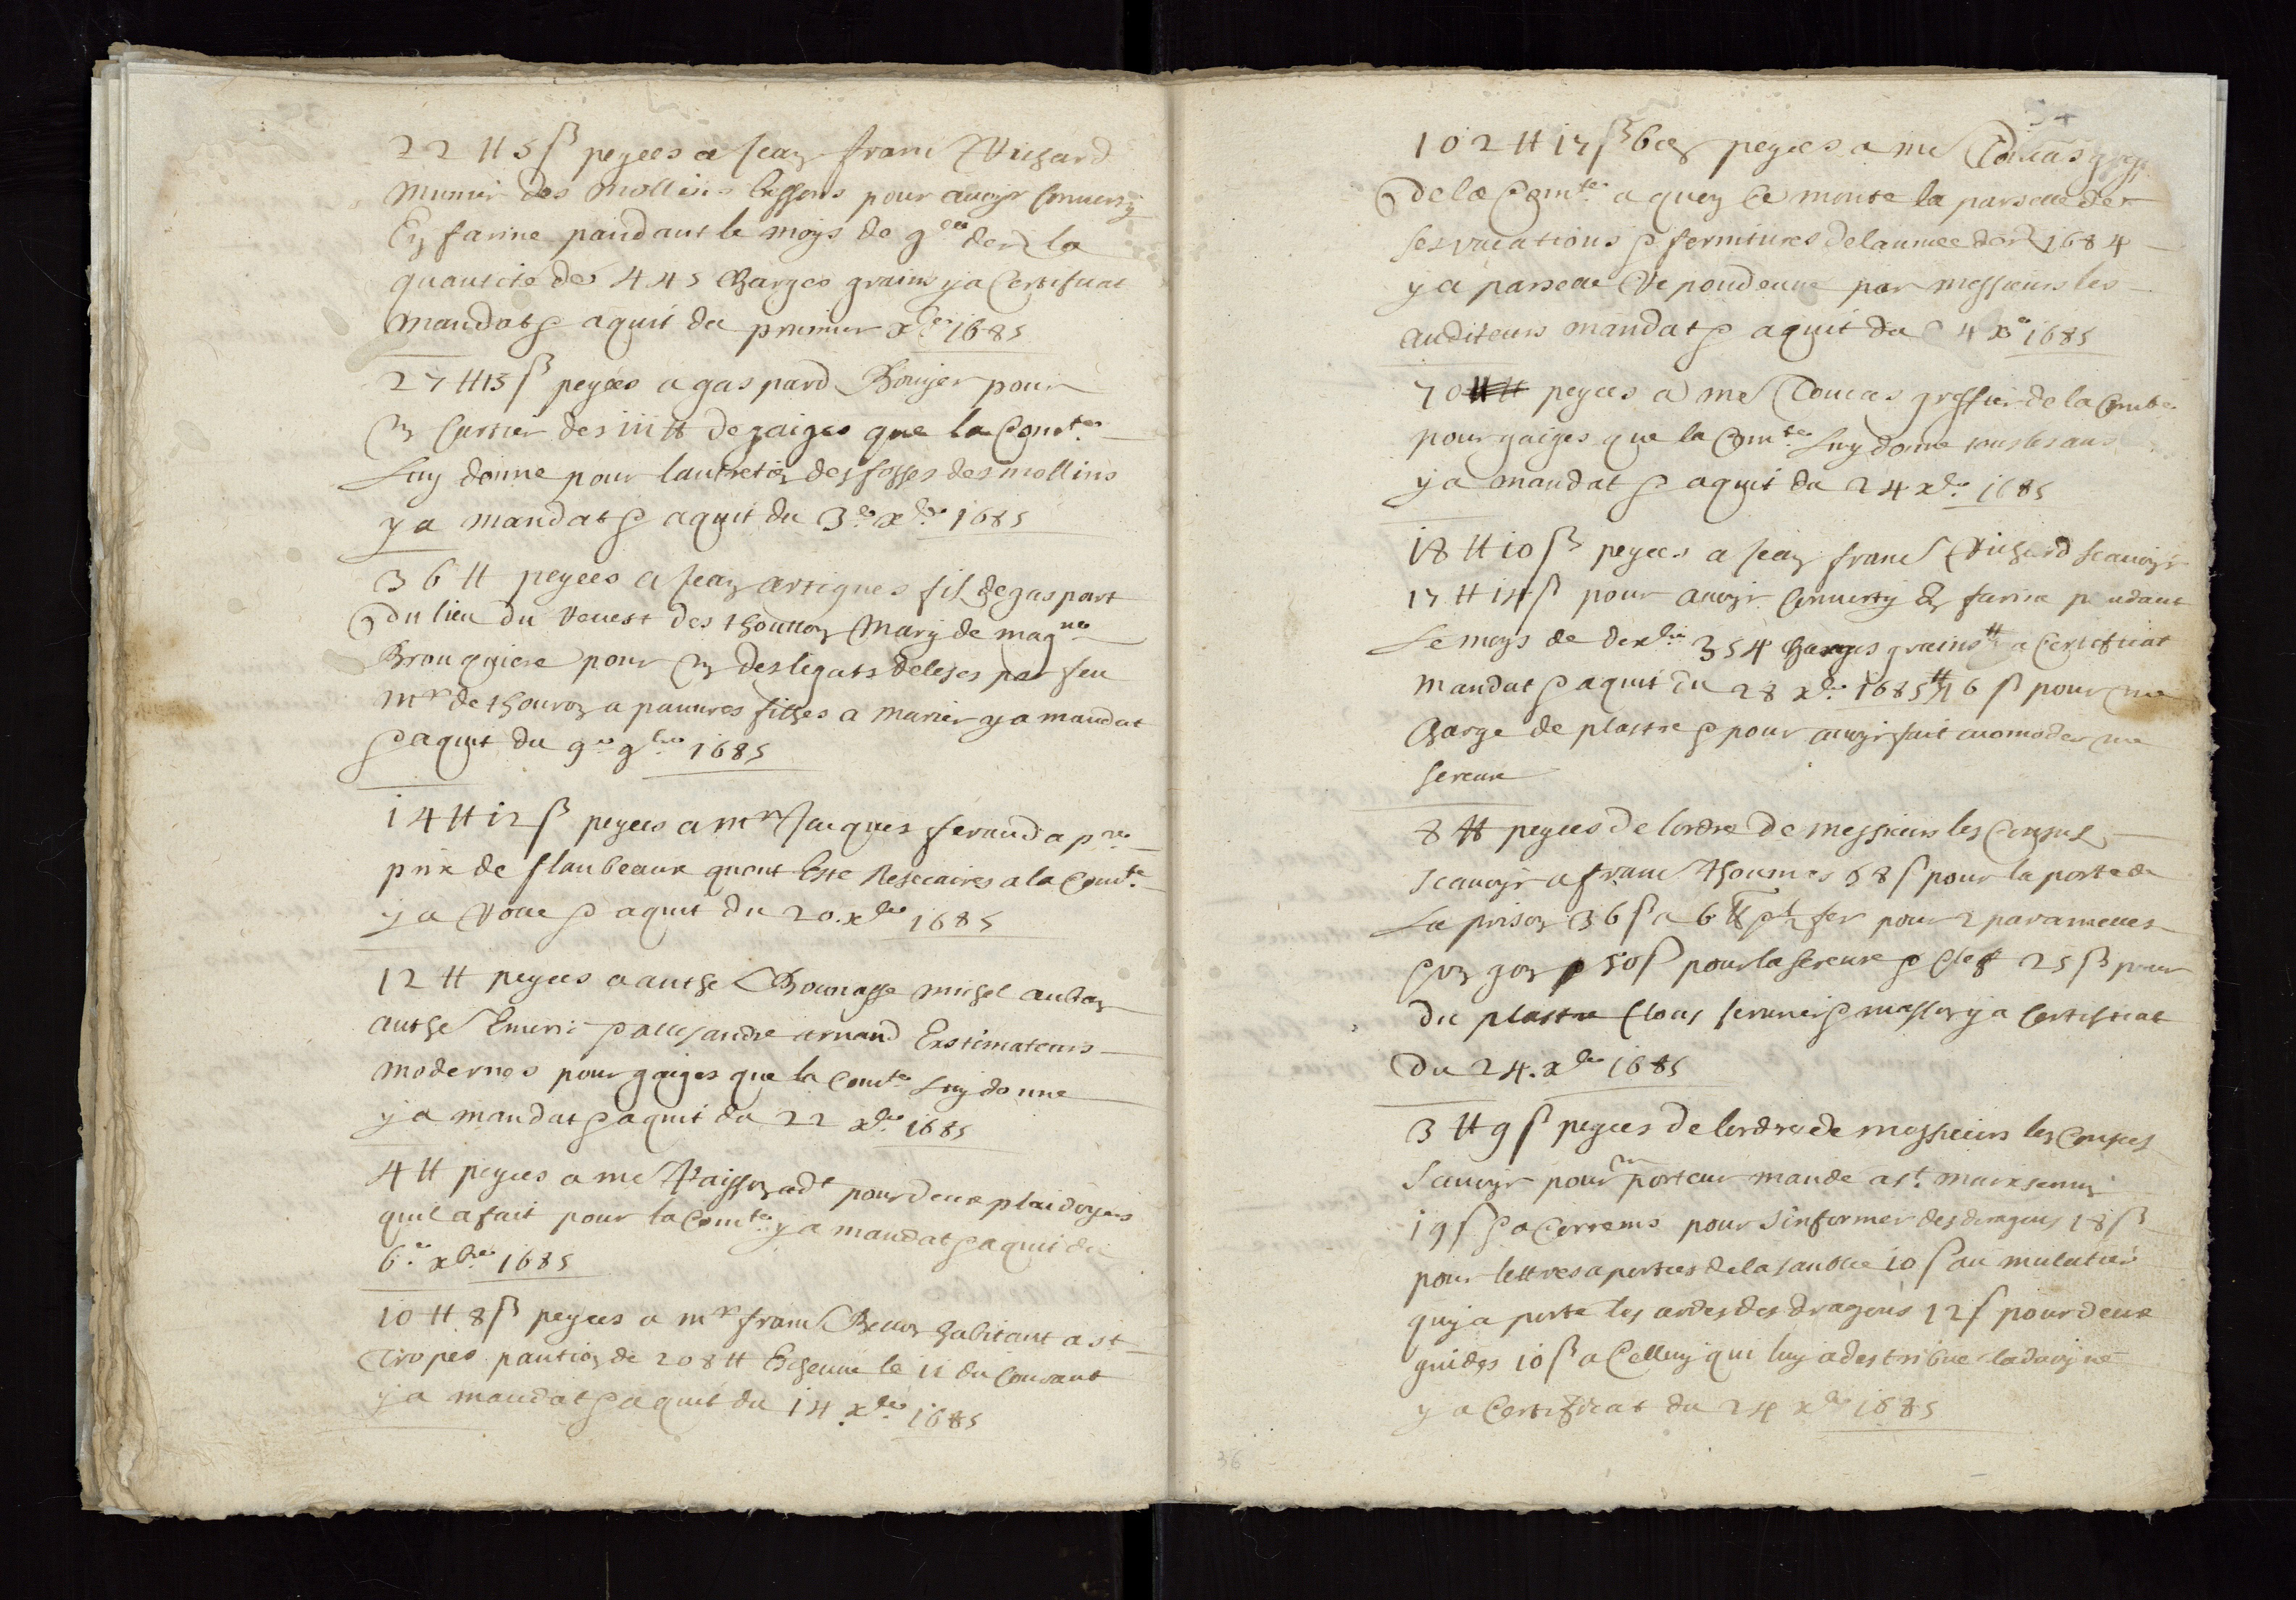 22 tt 5 ß peyées a Jean franc Vichard
munier des mollins bessons pour avoyr converty
En farine pandant le moys de 9bre der la
quantité de 445 charges grains y a Certificat
mandat & aquit du premier xbre 1685
27 tt 13 ß peyées a gaspard Bouyer pour
un cartier des iii tt de gaiges que la Comte
Luy donne pour lantretien des fosses des mollins
y a mandat & aquit du 3e xbre 1685
36 tt peyées a Jean artigues fils de gaspart
du lieu du Revest des thoullon mary de magne
Brouquiere pour un des legats delesés par feu
mr de thouron a pauvres filhes a marier y a mandat
& aquit du 9e 9bre 1685
14 tt 12 ß peyées a mr Jacques feraud a pre
prix de flanbeaux quont Este Nesecaires a la Comte
y a Rolle & aquit du 20. xbre 1685
12 tt peyées a anthe Bounasse michel auban
anthe Emeric & allexandre arnaud Exstimateurs
modernes pour gaiges que la Comte Luy donne
y a mandat & aquit du 22 xbre 1685
4 tt peyées a me Raisson adt pour deux plaidoyers
quil a fait pour la Comte y a mandat & aquit du
6e xbre 1685
10 tt 8 ß peyées a mr franc Bellon habitant a st
tropes pantion de 208 tt Escheue le 11 du Courant
y a mandat & aquit du 14 xbre 1685
34
102 tt 17 ß 6 den peyées a me Toucas greffr
de la Comte a quoy Ce monte la parselle de
ses vacations & fornitures de lannee der 1684
y a parselle Repondeue par messieurs les
auditeurs mandat & aquit du 4 xbre 1685
70 tt peyées a me Toucas greffier de la Comte
pour gaiges que la Comte Luy donne tous les ans
y a mandat & aquit du 24 xbre 1685
18 tt 10 ß peyées a Jean franc Vichard scavoyr
17 tt 14 ß pour avoyr Converty En farine pendant
Le moys de dexbre 354 charges grains y a Certificat
mandat & aquit du 28 xbre 1685 tt 16 ß pour une
Charge de plastre & pour avoyr fait acomoder une
sereure
8 tt peyées de lordre de messieurs les Consuls
scavoyr a franc thoumas 58 ß pour la porte de
La prison 36 ß a 6 tt & 1/2 fer pour 2 paramelles
& un gon 50 ß pour la sereure & Clef 25 ß pour
du plastre Clous serurier & masson y a Certificat
du 24. xbre 1685
3 tt 9 ß peyées de lordre de messieurs les Consuls
scavoyr pour un porteur mandé a st. maixsemin
19 ß & a Correns pour sinformer des dragons 18 ß
pour lettres aportées de la 10 ß au mulatier
quy a porté les ardes des dragons 12 ß pour deux
guides 10 ß a Celluy qui luy a destribue la davoyne
y a Certificat du 24 xbre 1685
36